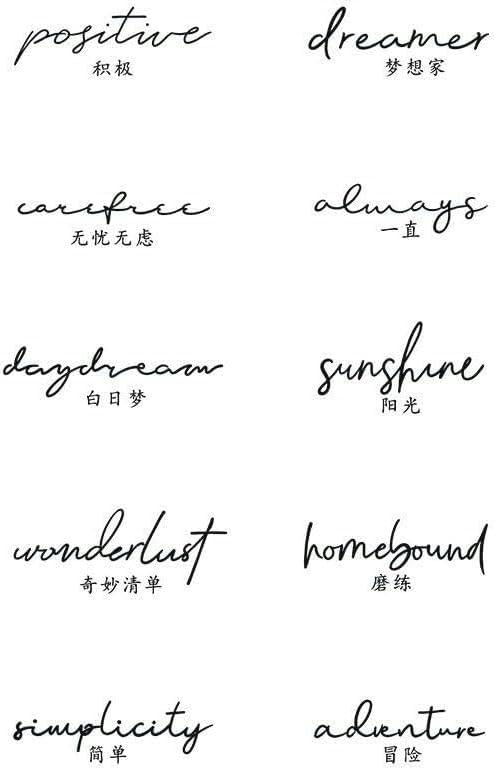 positive
积极
dreamer
梦想家
carefree
无忧无虑
always
一直
daydream
白日梦
sunshine
阳光
wonderlust
奇妙清单
homebound
磨练
simplicity
简单
adventure
冒险